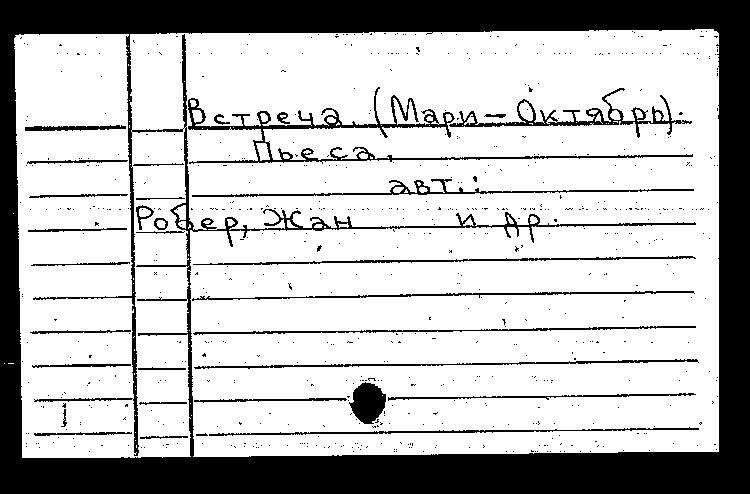 Встреча. (Мари-Октябрь).
Пьеса.
авт.:
Робер, Жан и др.